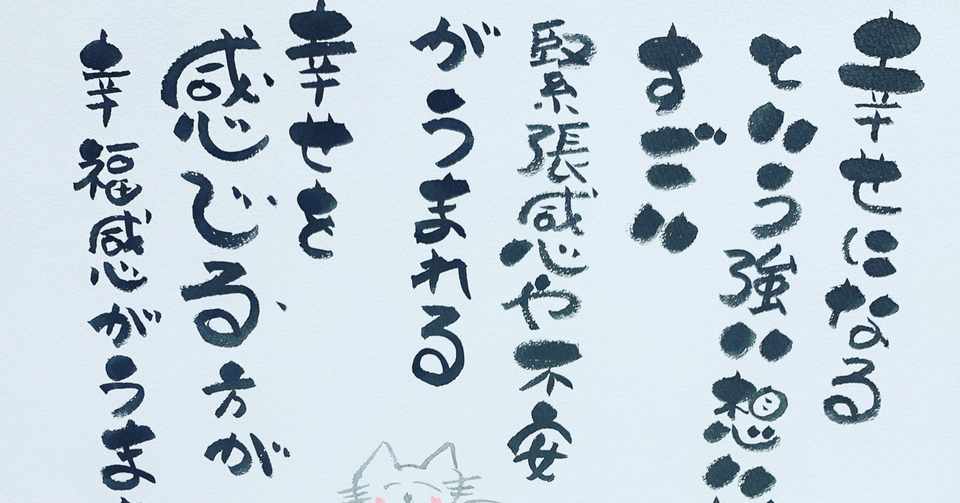 幸せになる
という強い想い
すごい
緊張感や不安
がうまれる
幸せを
感じる、方が
幸福感がうま